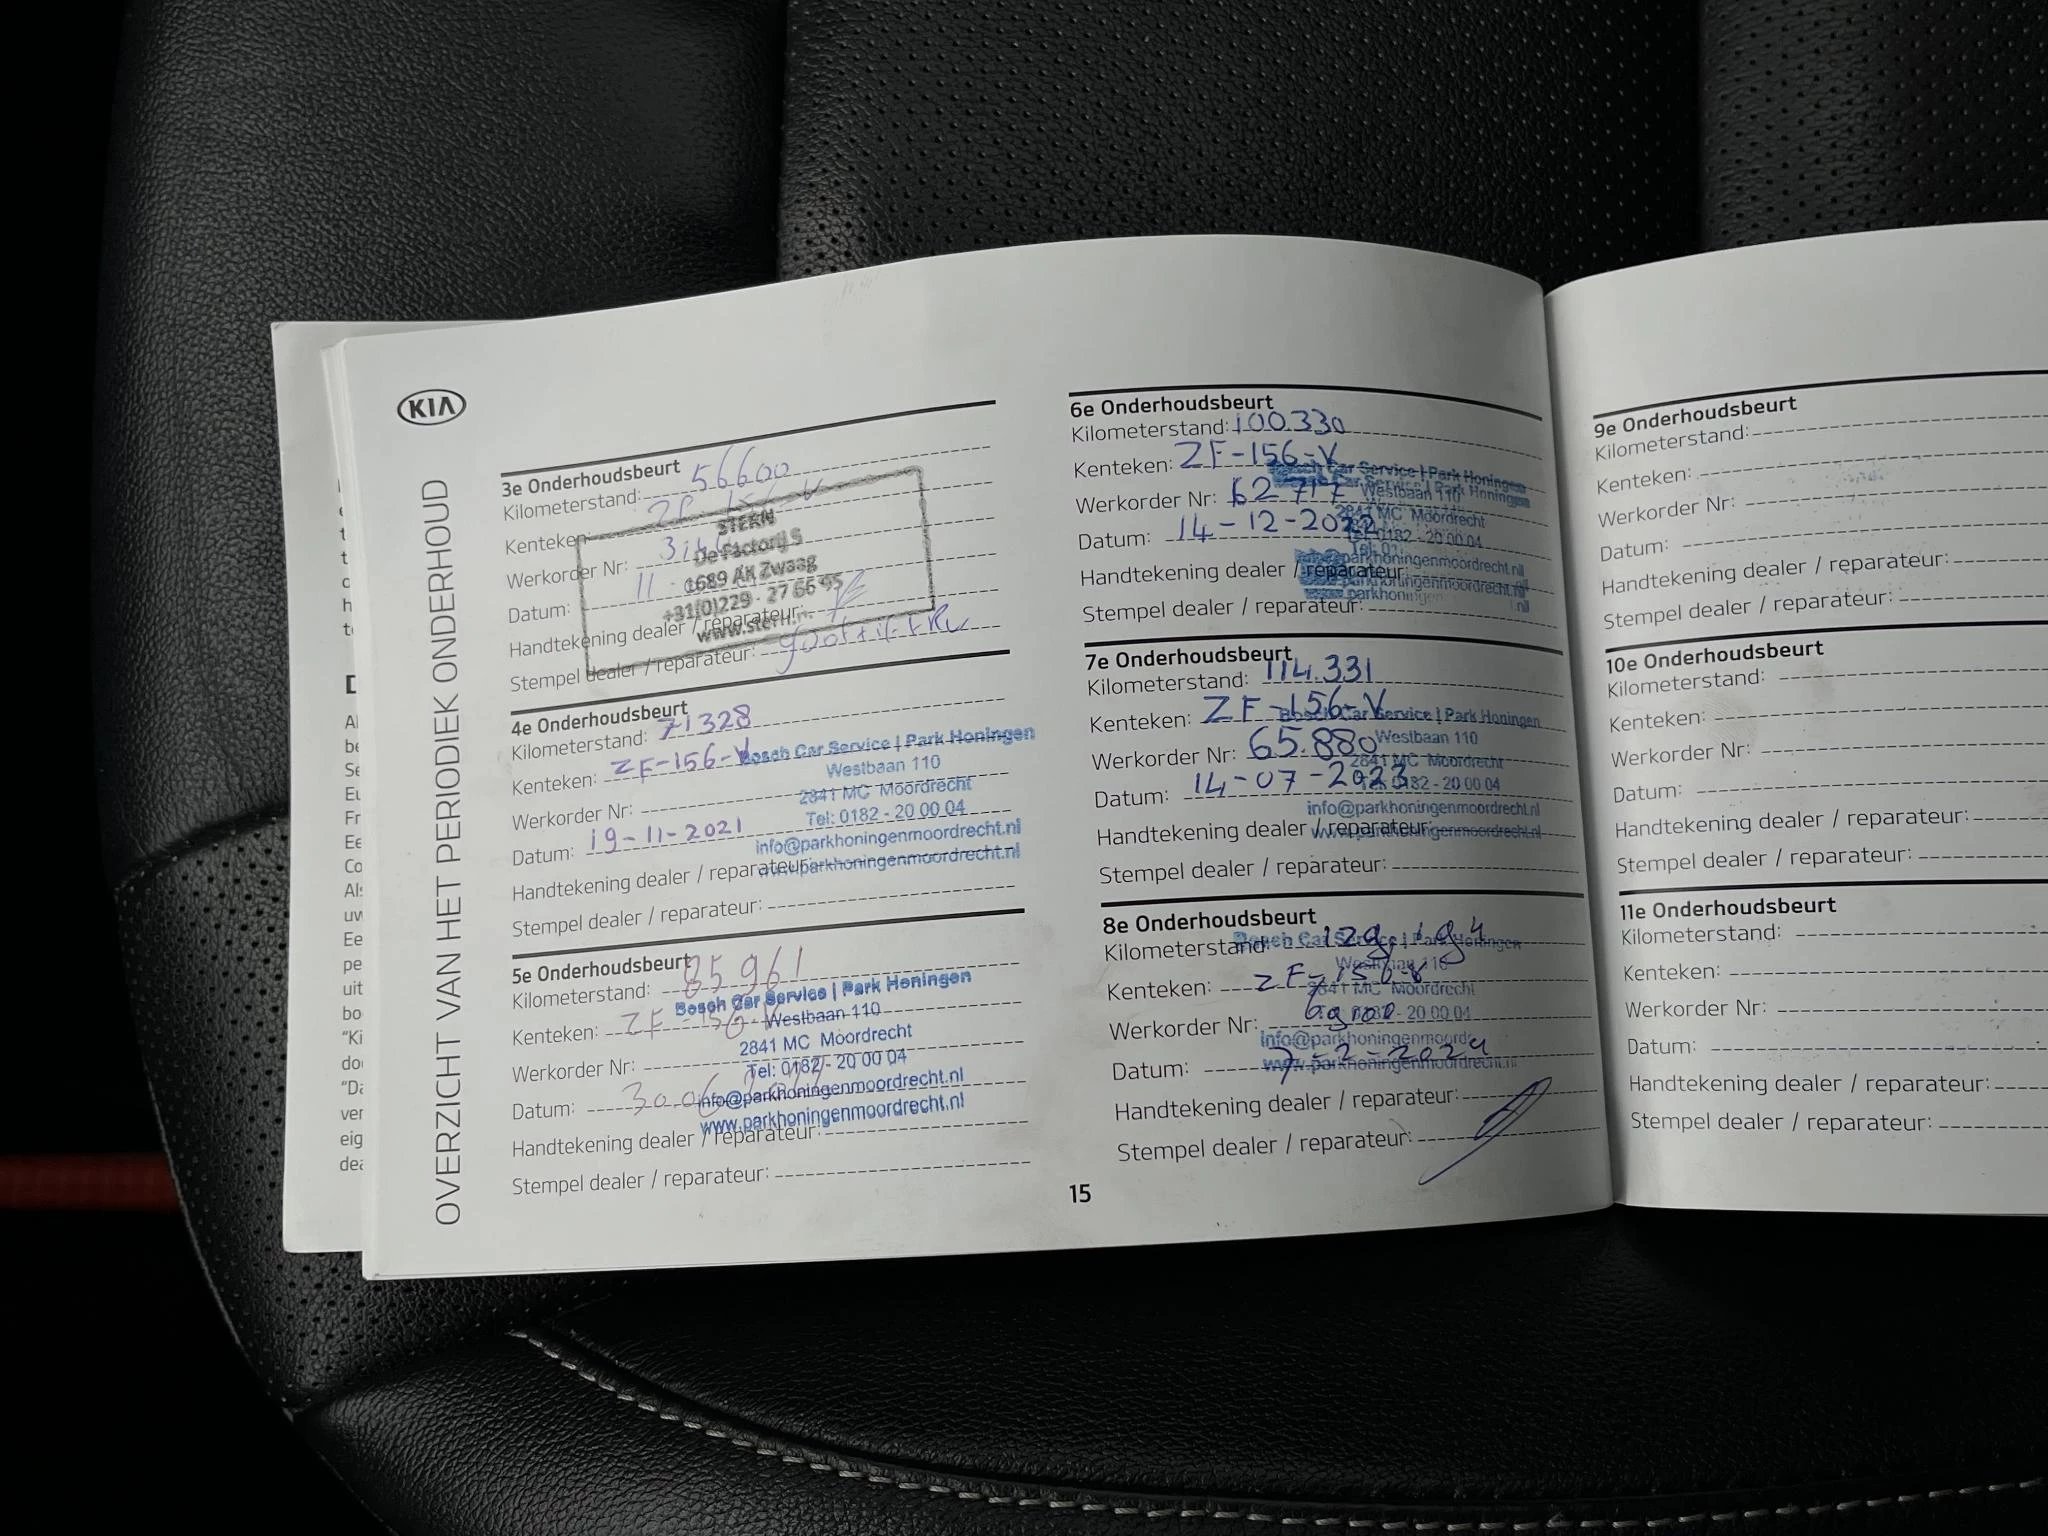 KIA
OVERZICHT VAN HET PERIODIEK ONDERHOUD
3e Onderhoudsbeurt
Kilometerstand: 56600
Kenteken:
STERN
De Factorij 5
Werkorder Nr:
1689 AK Zwaag
Datum: 11
+31(0)229 - 27 66 95
Handtekening dealer / reparateur:
www.stern.
Stempel dealer / reparateur:
4e Onderhoudsbeurt
Kilometerstand: 71328
Kenteken: ZF-156-V
Bosch Car Service | Park Honingen
Westbaan 110
Werkorder Nr:
2841 MC Moordrecht
Tel: 0182 - 20 00 04
Datum: 19-11-2021
info@parkhoningenmoordrecht.nl
www.parkhoningenmoordrecht.nl
Handtekening dealer / reparateur:
Stempel dealer / reparateur:
5e Onderhoudsbeurt
Kilometerstand: 85961
Bosch Car Service | Park Honingen
Kenteken: ZF-156-V
Westbaan 110
2841 MC Moordrecht
Werkorder Nr:
Tel: 0182 - 20 00 04
Datum:
info@parkhoningenmoordrecht.nl
www.parkhoningenmoordrecht.nl
Handtekening dealer / reparateur:
Stempel dealer / reparateur:
6e Onderhoudsbeurt
Kilometerstand: 100.330
Kenteken: ZF-156-V
Bosch Car Service | Park Honingen
Westbaan 110
Werkorder Nr: 62717
2841 MC Moordrecht
Datum: 14-12-2022
0182 - 20 00 04
Handtekening dealer / reparateur:
Stempel dealer / reparateur:
7e Onderhoudsbeurt
Kilometerstand: 114.331
Kenteken: ZF-156-V
Bosch Car Service | Park Honingen
Westbaan 110
Werkorder Nr: 65.880
2841 MC Moordrecht
Datum: 14-07-2023
Tel: 0182 - 20 00 04
info@parkhoningenmoordrecht.nl
www.parkhoningenmoordrecht.nl
Handtekening dealer / reparateur:
Stempel dealer / reparateur:
8e Onderhoudsbeurt
Kilometerstand: 129.194
Bosch Car Service | Park Honingen
Westbaan 110
Kenteken: ZF-156-V
2841 MC Moordrecht
Werkorder Nr:
0182 - 20 00 04
info@parkhoningenmoordrecht
Datum: 7-2-2024
www.parkhoningenmoordrecht.nl
Handtekening dealer / reparateur:
Stempel dealer / reparateur:
15
9e Onderhoudsbeurt
Kilometerstand:
Kenteken:
Werkorder Nr:
Datum:
Handtekening dealer / reparateur:
Stempel dealer / reparateur:
10e Onderhoudsbeurt
Kilometerstand:
Kenteken:
Werkorder Nr:
Datum:
Handtekening dealer / reparateur:
Stempel dealer / reparateur:
11e Onderhoudsbeurt
Kilometerstand:
Kenteken:
Werkorder Nr:
Datum:
Handtekening dealer / reparateur:
Stempel dealer / reparateur: